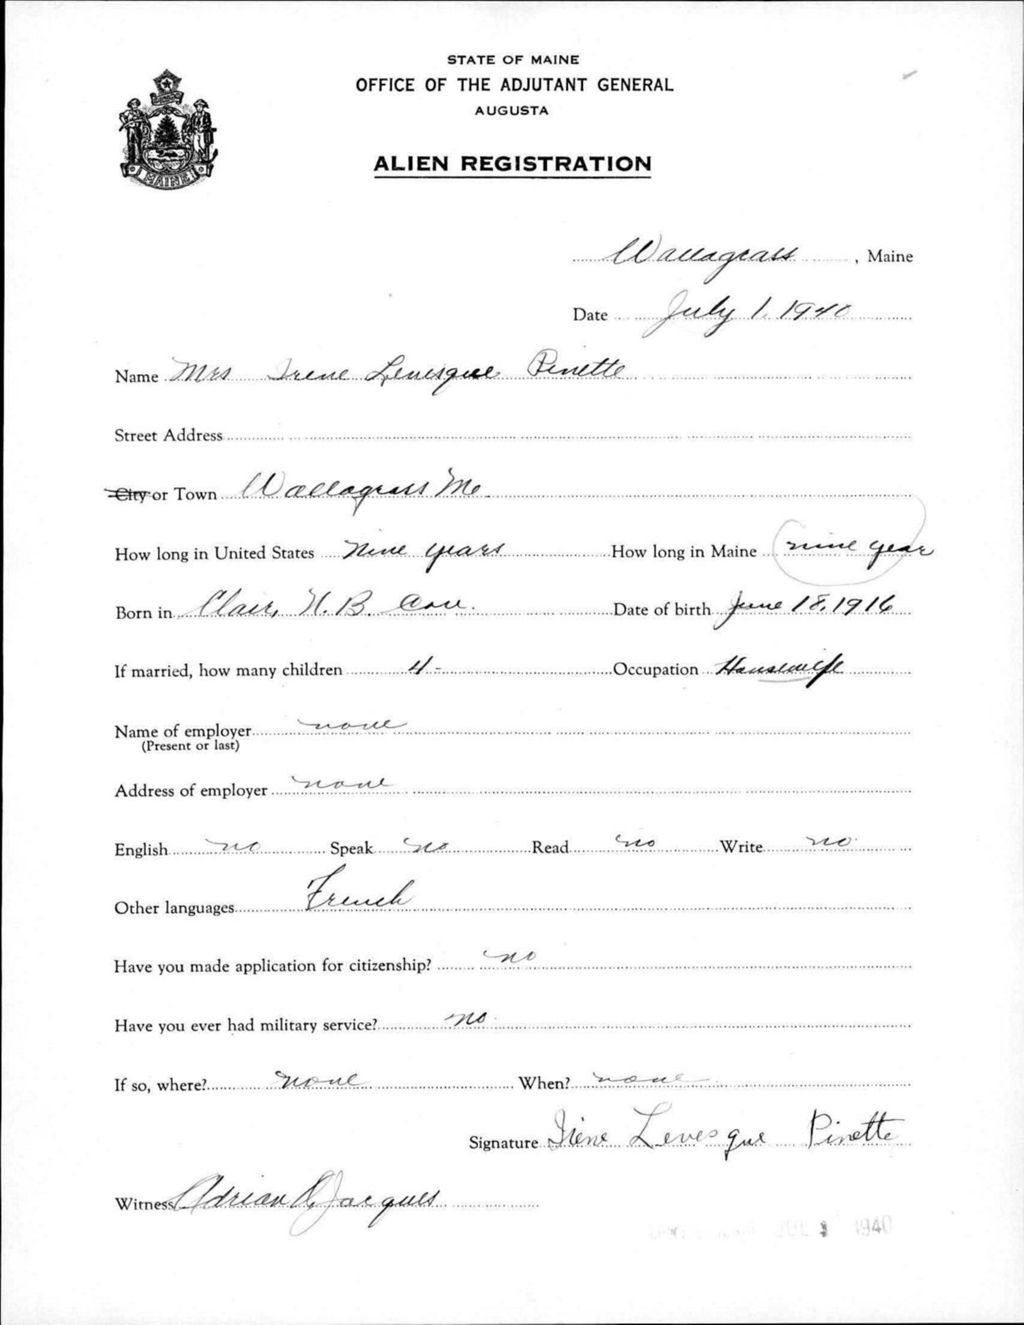 STATE OF MAINE
OFFICE OF THE ADJUTANT GENERAL
AUGUSTA
ALIEN REGISTRATION
MAINE
Wallagrass, Maine
Date July 1, 1940
Name Mrs Irene Levesque Pinette
Street Address
City or Town Wallagrass Me.
How long in United States Nine years How long in Maine nine year
Born in Clair, N. B. Can. Date of birth June 18, 1916
If married, how many children 4 - Occupation Housewife
Name of employer none
(Present or last)
Address of employer none
English no Speak no Read no Write no
Other languages French
Have you made application for citizenship? no
Have you ever had military service? no
If so, where? none When? none
Signature Irène Levesque Pinette
Witness Adrian Jacques
JUL 1940